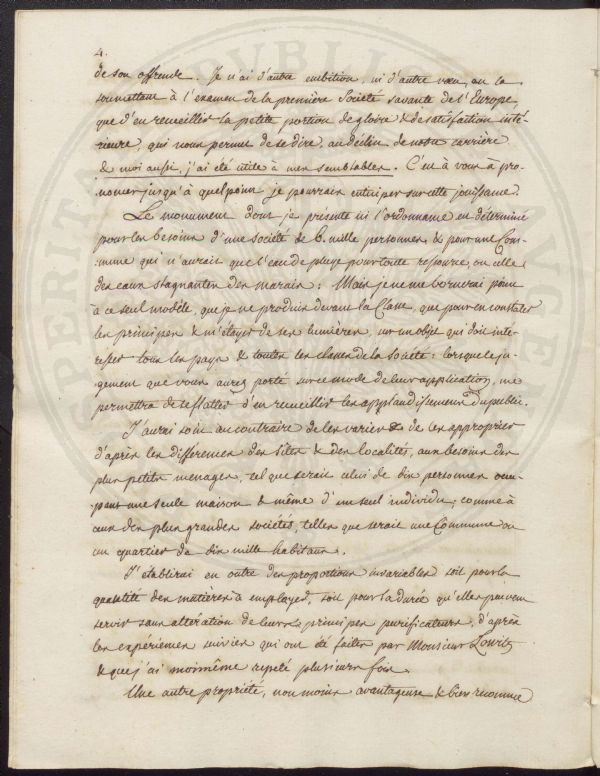 4.
de son offrende. Je n'ai d'autre embition, ni d'autre vœu, en la
soumettant à l'examen de la première Société savante de l'Europe,
que d'en recueillir la petite portion de gloire & de satisfaction inté-
rieure, qui nous permet de se dire, au déclin de notre carrière
& moi aussi, j'ai été utile à mes semblables. C'en à vous à pro-
noncer jusqu'à quel point je pourrais enticiper sur cette jouissance.
Le monument dont je présente ici l'ordonnance en déterminé
pour les besoins d'une société de 6. mille personnes & pour une Com-
-mune qui n'aurait que l'eau de pluye pour toute resource, ou celle
des eaux stagnantes des marais: Mais je ne me bornerai point
à ce seul modèle, que je ne produis devant la Classe, que pour en constater
les principes & m'étayer de ses lumières, sur un objet qui doit inte-
resser tous les pays & toutes les classes de la société: lorsque le ju-
gement que vous aurez porté sur ce mode de leur application, me
permettra de me flatter d'en recueillir les applaudissemens du public.
J'aurai soin au contraire de les varier & de les approprier
d'après les differences des sites & des localités, aux besoins des
plus petits menages, tel que serait celui de dix personnes occu-
pant une seule maison & même d'un seul individu, comme à
ceux des plus grandes sociétés, telles que serait une Commune ou
un quartier de dix mille habitans.
J'établirai en outre des proportions invariables soit pour la
quantité des matières à employer, soit pour la durée qu'elles peuvent
servir sans altération de leurs principes purificateurs, d'après
les expériences suivies qui ont été faites par Monsieur Lowitz
& que j'ai moimême repeté plusieurs fois.
Une autre propriété, non moins avantageuse & bien reconnue